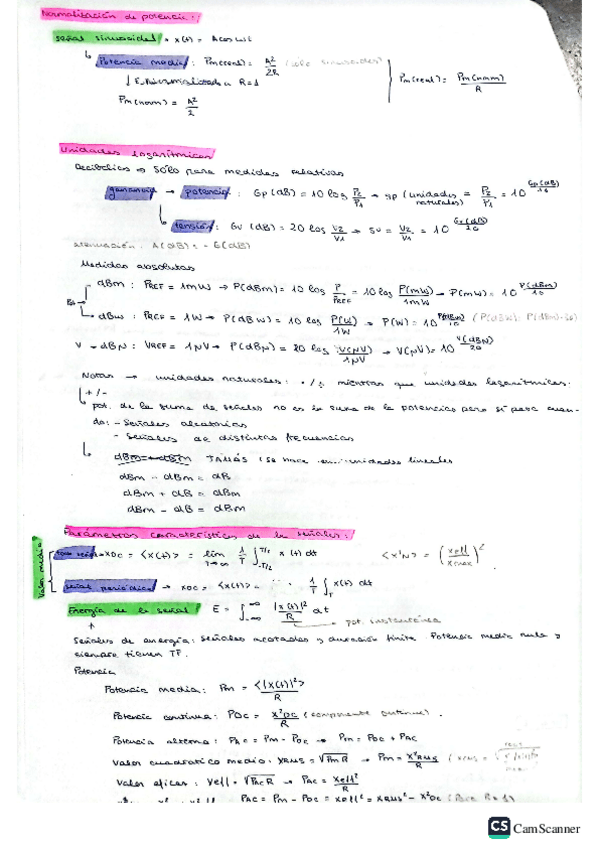 Normalización de potencia:
señal sinusoidal • x(t) = A cos ωt
Potencia media : Pm(real) = A²/2R (solo sinusoides)
R=1
Pm(norm) = A²/2
Pm(real) = Pm(norm)/R
Unidades logarítmicas
Decibelios → Sólo para medidas relativas
ganancia → potencia : Gp (dB) = 10 log P2/P1 → gp (unidades naturales) = P2/P1 = 10^Gp(dB)/10
tensión : Gv (dB) = 20 log V2/V1 → gv = V2/V1 = 10
atenuación : A(dB) = - G(dB)
Medidas absolutas
dBm : PREF = 1mW → P(dBm) = 10 log P/PREF = 10 log P(mW)/1mW → P(mW) = 10^P(dBm)/10
dBw : PREF = 1W → P(dBW) = 10 log P(W)/1W → P(W) = 10
Notas → unidades naturales : · / ÷ mientras que unidades logarítmicas.
+ / -
pot. de la suma de señales no es la suma de la potencias pero sí pasa cuando: - Señales aleatorias
- Señales de distintas frecuencias
dBm + dBm
dBm - dBm = dB
dBm + dB = dBm
dBm - dB = dBm
Parámetros característicos de la señales:
Valor medio
xDC = <x(t)> = lim T→∞ 1/T ∫ -T/2 T/2 x(t) dt
señal periódica → xDC = <x(t)> = 1/T ∫T x(t) dt
Energía de la señal E = ∫ |x(t)|²/R dt
pot. instantánea
Señales de energía: señales acotadas y duración finita. Potencia media nula y siempre tienen TF.
Potencia
Potencia media : Pm = <|x(t)|²>/R
Potencia continua : PDC = x²DC/R (componente continua).
Potencia alterna : PAC = Pm - PDC → Pm = PDC + PAC
Valor cuadrático medio : xRMS = √PmR → Pm = x²RMS/R
Valor eficaz : xeff = √PACR → PAC = xeff²/R
PAC = Pm - PDC = xeff² = xRMS² - x²DC (Para R=1)
CS CamScanner